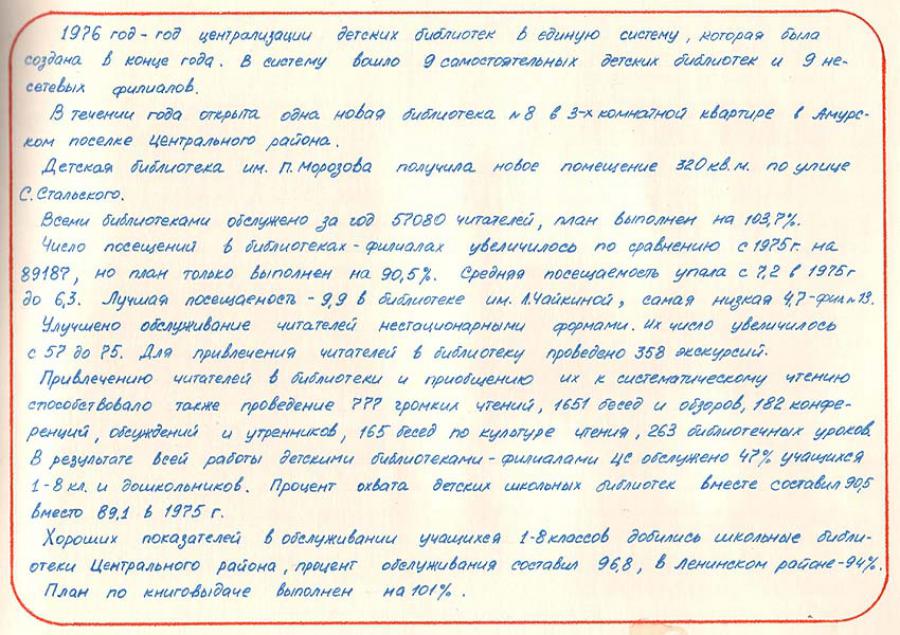 1976 год - год централизации детских библиотек в единую систему, которая была
создана в конце года. В систему вошло 9 самостоятельных детских библиотек и 9 не-
сетевых филиалов.
В течении года открыта одна новая библиотека №8 в 3-х комнатной квартире в Амурс-
ком поселке Центрального района.
Детская библиотека им. П. Морозова получила новое помещение 320 кв. м. по улице
С. Стальского.
Всеми библиотеками обслужено за год 57080 читателей, план выполнен на 103,7%.
Число посещений в библиотеках - филиалах увеличилось по сравнению с 1975 г. на
89187, но план только выполнен на 90,5%. Средняя посещаемость упала с 7,2 в 1975 г
до 6,3. Лучшая посещаемость - 9,9 в библиотеке им. Л. Чайкиной, самая низкая 4,7 - фил №13.
Улучшено обслуживание читателей нестационарными формами. Их число увеличилось
с 57 до 75. Для привлечения читателей в библиотеку проведено 358 экскурсий.
Привлечению читателей в библиотеки и приобщению их к систематическому чтению
способствовало также проведение 777 громких чтений, 1651 бесед и обзоров, 182 конфе-
ренций, обсуждений и утренников, 165 бесед по культуре чтения, 263 библиотечных уроков.
В результате всей работы детскими библиотеками - филиалами ЦС обслужено 47% учащихся
1-8 кл. и дошкольников. Процент охвата детских школьных библиотек вместе составил 90,5
вместо 89,1 в 1975 г.
Хороших показателей в обслуживании учащихся 1-8 классов добились школьные библи-
отеки Центрального района, процент обслуживания составил 96,8, в Ленинском районе - 94%.
План по книговыдаче выполнен на 101%.